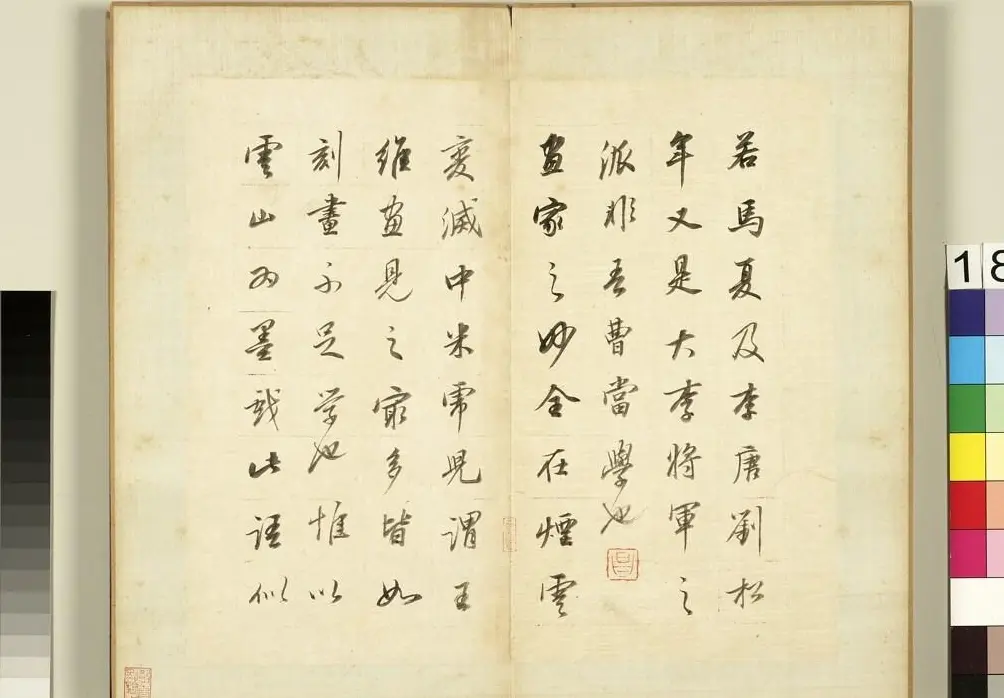 若馬夏及李唐劉松
年又是大李將軍之
派非吾曹當學也
畫家之妙全在煙雲
變滅中米虎見謂王
維畫見之最多皆如
刻畫不足學也惟以
雲山為墨戲此語似
18